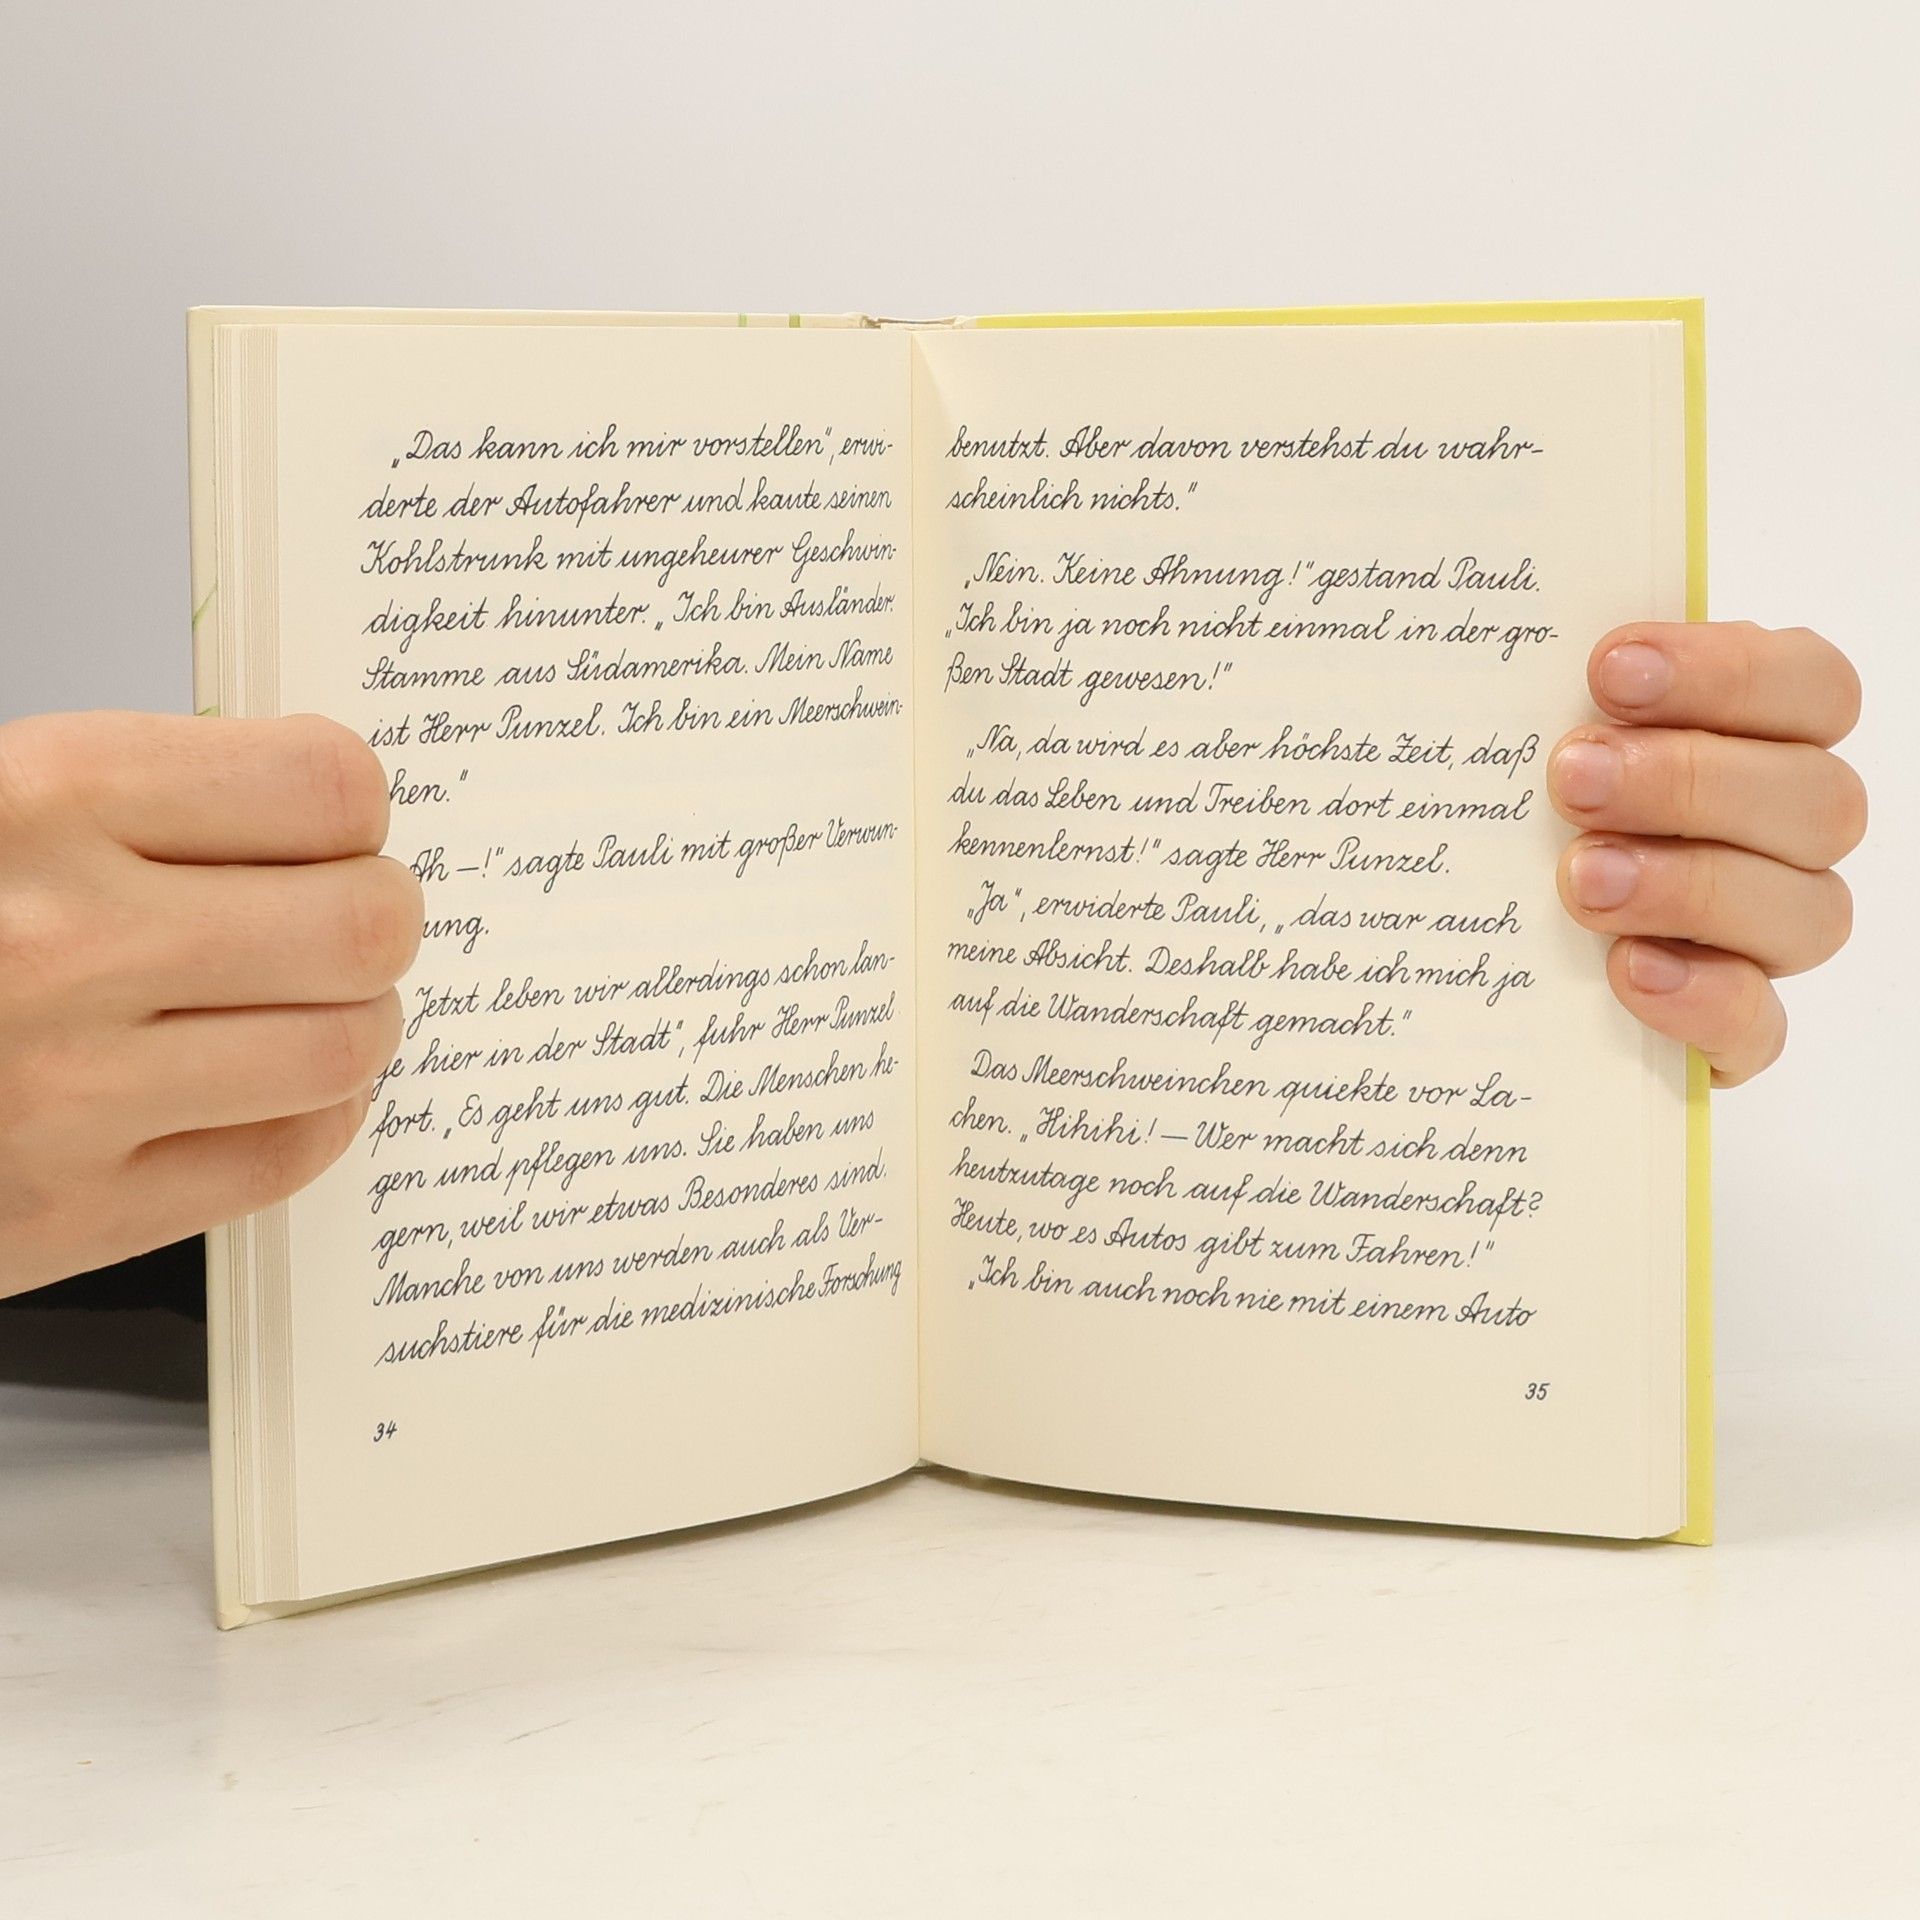 „Das kann ich mir vorstellen“, erwi-
derte der Autofahrer und kaute seinen
Kohlstrunk mit ungeheurer Geschwin-
digkeit hinunter. „Ich bin Ausländer.
Stamme aus Südamerika. Mein Name
ist Herr Punzel. Ich bin ein Meerschwein-
hen.“
Ah –!“ sagte Pauli mit großer Verwun-
ung.
„Jetzt leben wir allerdings schon lan-
ge hier in der Stadt“, fuhr Herr Punzel
fort. „Es geht uns gut. Die Menschen he-
gen und pflegen uns. Sie haben uns
gern, weil wir etwas Besonderes sind.
Manche von uns werden auch als Ver-
suchstiere für die medizinische Forschung
34
benutzt. Aber davon verstehst du wahr-
scheinlich nichts.“
„Nein. Keine Ahnung!“ gestand Pauli.
„Ich bin ja noch nicht einmal in der gro-
ßen Stadt gewesen!“
„Na, da wird es aber höchste Zeit, daß
du das Leben und Treiben dort einmal
kennenlernst!“ sagte Herr Punzel.
„Ja“, erwiderte Pauli, „das war auch
meine Absicht. Deshalb habe ich mich ja
auf die Wanderschaft gemacht.“
Das Meerschweinchen quiekte vor La-
chen. „Hihihi! – Wer macht sich denn
heutzutage noch auf die Wanderschaft?
Heute, wo es Autos gibt zum Fahren!“
„Ich bin auch noch nie mit einem Auto
35